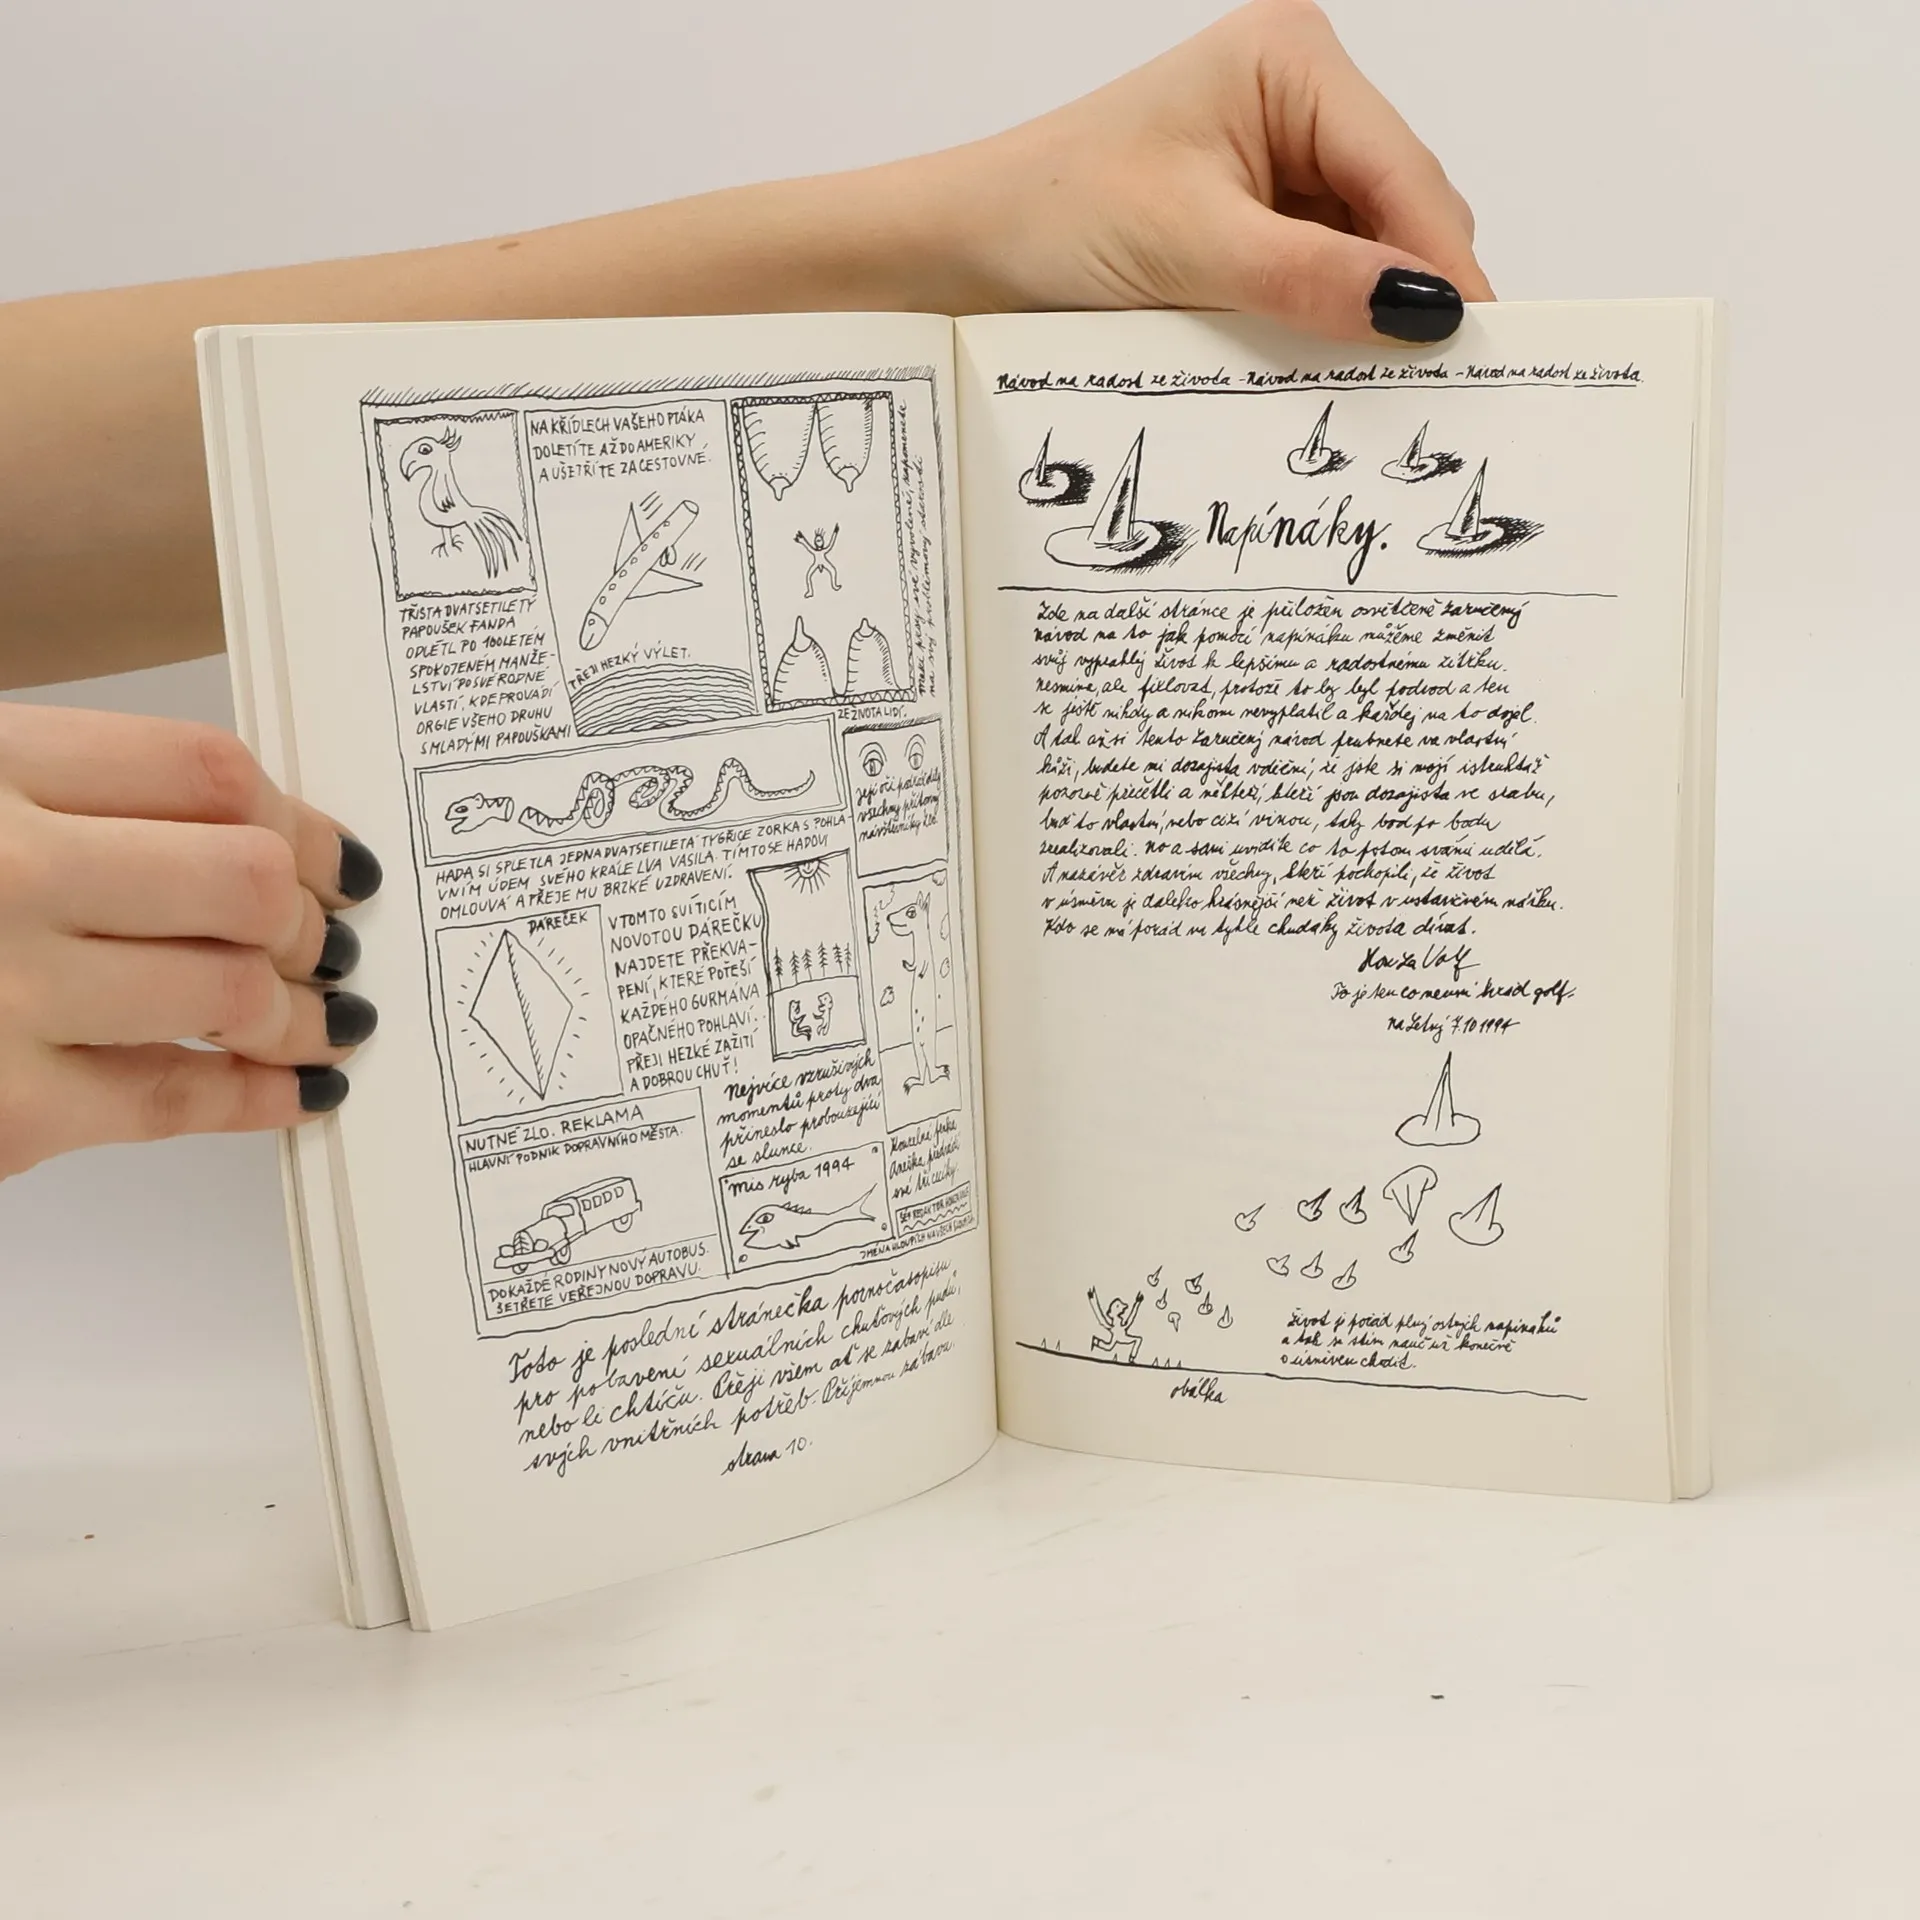 NA KŘÍDLECH VAŠEHO PTÁKA
DOLETÍTE AŽ DO AMERIKY
A UŠETŘÍTE ZA CESTOVNÉ.
PŘEJI HEZKÝ VÝLET.
TŘISTADVATSETILETÝ
PAPOUŠEK FANDA
ODLETĚL PO 100LETÉM
SPOKOJENÉM MANŽE-
LSTVÍ DO SVÉ RODNÉ
VLASTI, KDE PROVÁDÍ
ORGIE VŠEHO DRUHU
S MLADÝMI PAPOUŠKAMI
na svý problémový starosti
ZE ŽIVOTA LIDÍ.
Její oči
všechny přítomný
návštěvníky ZOO
HADA SI SPLETLA JEDNADVATSETILETÁ TYGŘICE ZORKA S POHLA-
VNÍM ÚDEM SVÉHO KRÁLE LVA VASILA. TÍMTO SE HADOVI
OMLOUVÁ A PŘEJE MU BRZKÉ UZDRAVENÍ.
DÁREČEK
V TOMTO SVÍTÍCÍM
NOVOTOU DÁREČKU
NAJDETE PŘEKVA-
PENÍ, KTERÉ POTĚŠÍ
KAŽDÉHO GURMÁNA
OPAČNÉHO POHLAVÍ.
PŘEJI HEZKÉ ZAŽITÍ
A DOBROU CHUŤ!
Nejvíce vzrušivých
momentů pro ty dva
přineslo probouzející
se slunce.
Kouzelná fenka
Anežka předvádí
své tři cecíky.
NUTNÉ ZLO. REKLAMA
HLAVNÍ PODNIK DOPRAVNÍHO MĚSTA.
DO KAŽDÉ RODINY NOVÝ AUTOBUS.
ŠETŘETE VEŘEJNOU DOPRAVU.
Mis ryba 1994
ŠÉF REDAKTOR HONZA VOLF
JMÉNA HLOUPÝCH NA VŠECH SLOUPÍCH
Toto je poslední stránečka pornočasopisu
pro pobavení sexuálních chuťových pudů,
nebo li chtíču. Přeji všem ať se zabaví dle
svých vnitřních potřeb. Příjemnou zábavu.
strana 10.
Návod na radost ze života - Návod na radost ze života - Návod na radost ze života.
Napínáky.
Zde na další stránce je přiložen osvětčeně zaručený
návod na to jak pomocí napínáku můžeme změnit
svůj vyprahlý život k lepšímu a radostnému zítřku.
Nesmíme, ale fixlovat, protože to by byl podvod a ten
se ještě nikdy a nikomu nevyplatil a každej na to dojel.
A tak až si tento zaručený návod prubnete na vlastní
kůži, budete mi dozajista vděční, že jste si mojí istruktáž
pozorně přečetli a někteří, kteří jsou dozajista ve srabu,
buď to vlastní, nebo cizí vinou, taky bod po bodu
zrealizovali. No a sami uvidíte co to potom s vámi udělá.
A nazávěr zdravím všechny, kteří pochopili, že život
v úsměvu je daleko krásnější než život v ustavičném nářku.
Kdo se má pořád na tyhle chudáky života dívat.
Honza Volf
To je ten co neumí hrád golf.
na Letný 7.10 1994
Život je pořád plný ostrých napínáků
a tak se s tím nauč už konečně
o úsměvu chodit.
obálka